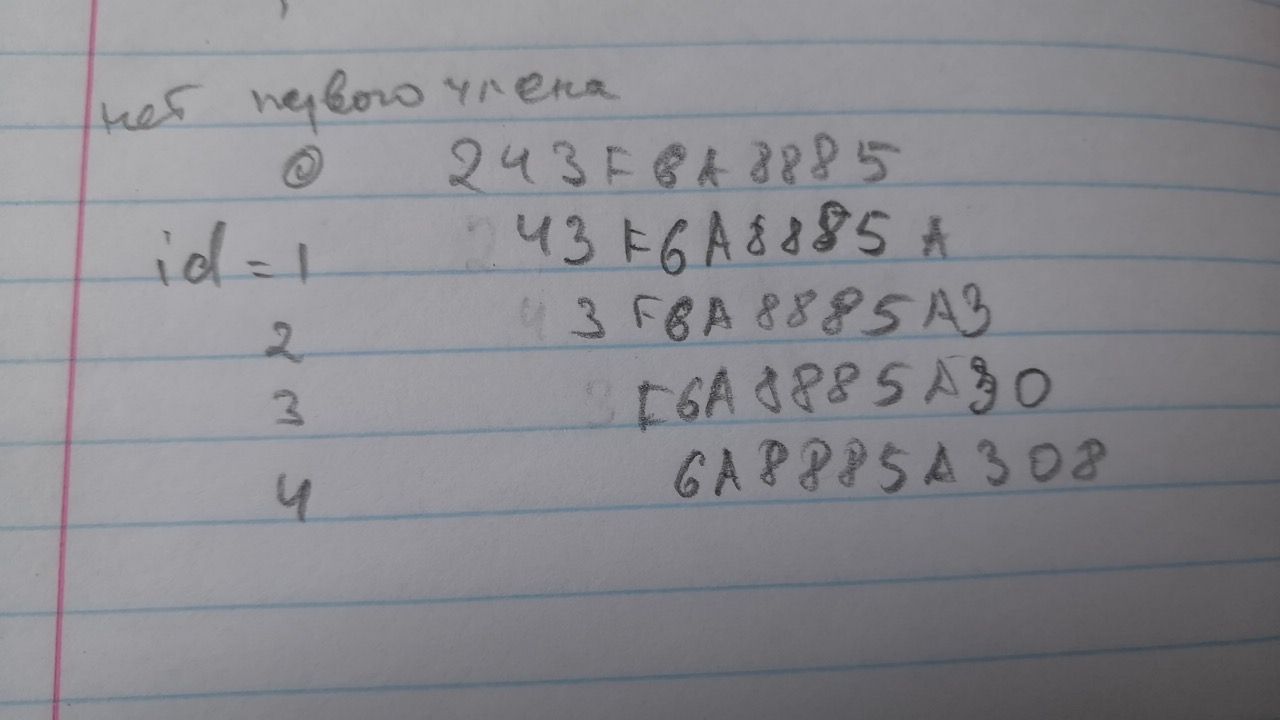 нет первого члена
0 243F6A8885
id = 1 43F6A8885A
2 3F6A8885A3
3 F6A8885A30
4 6A8885A308